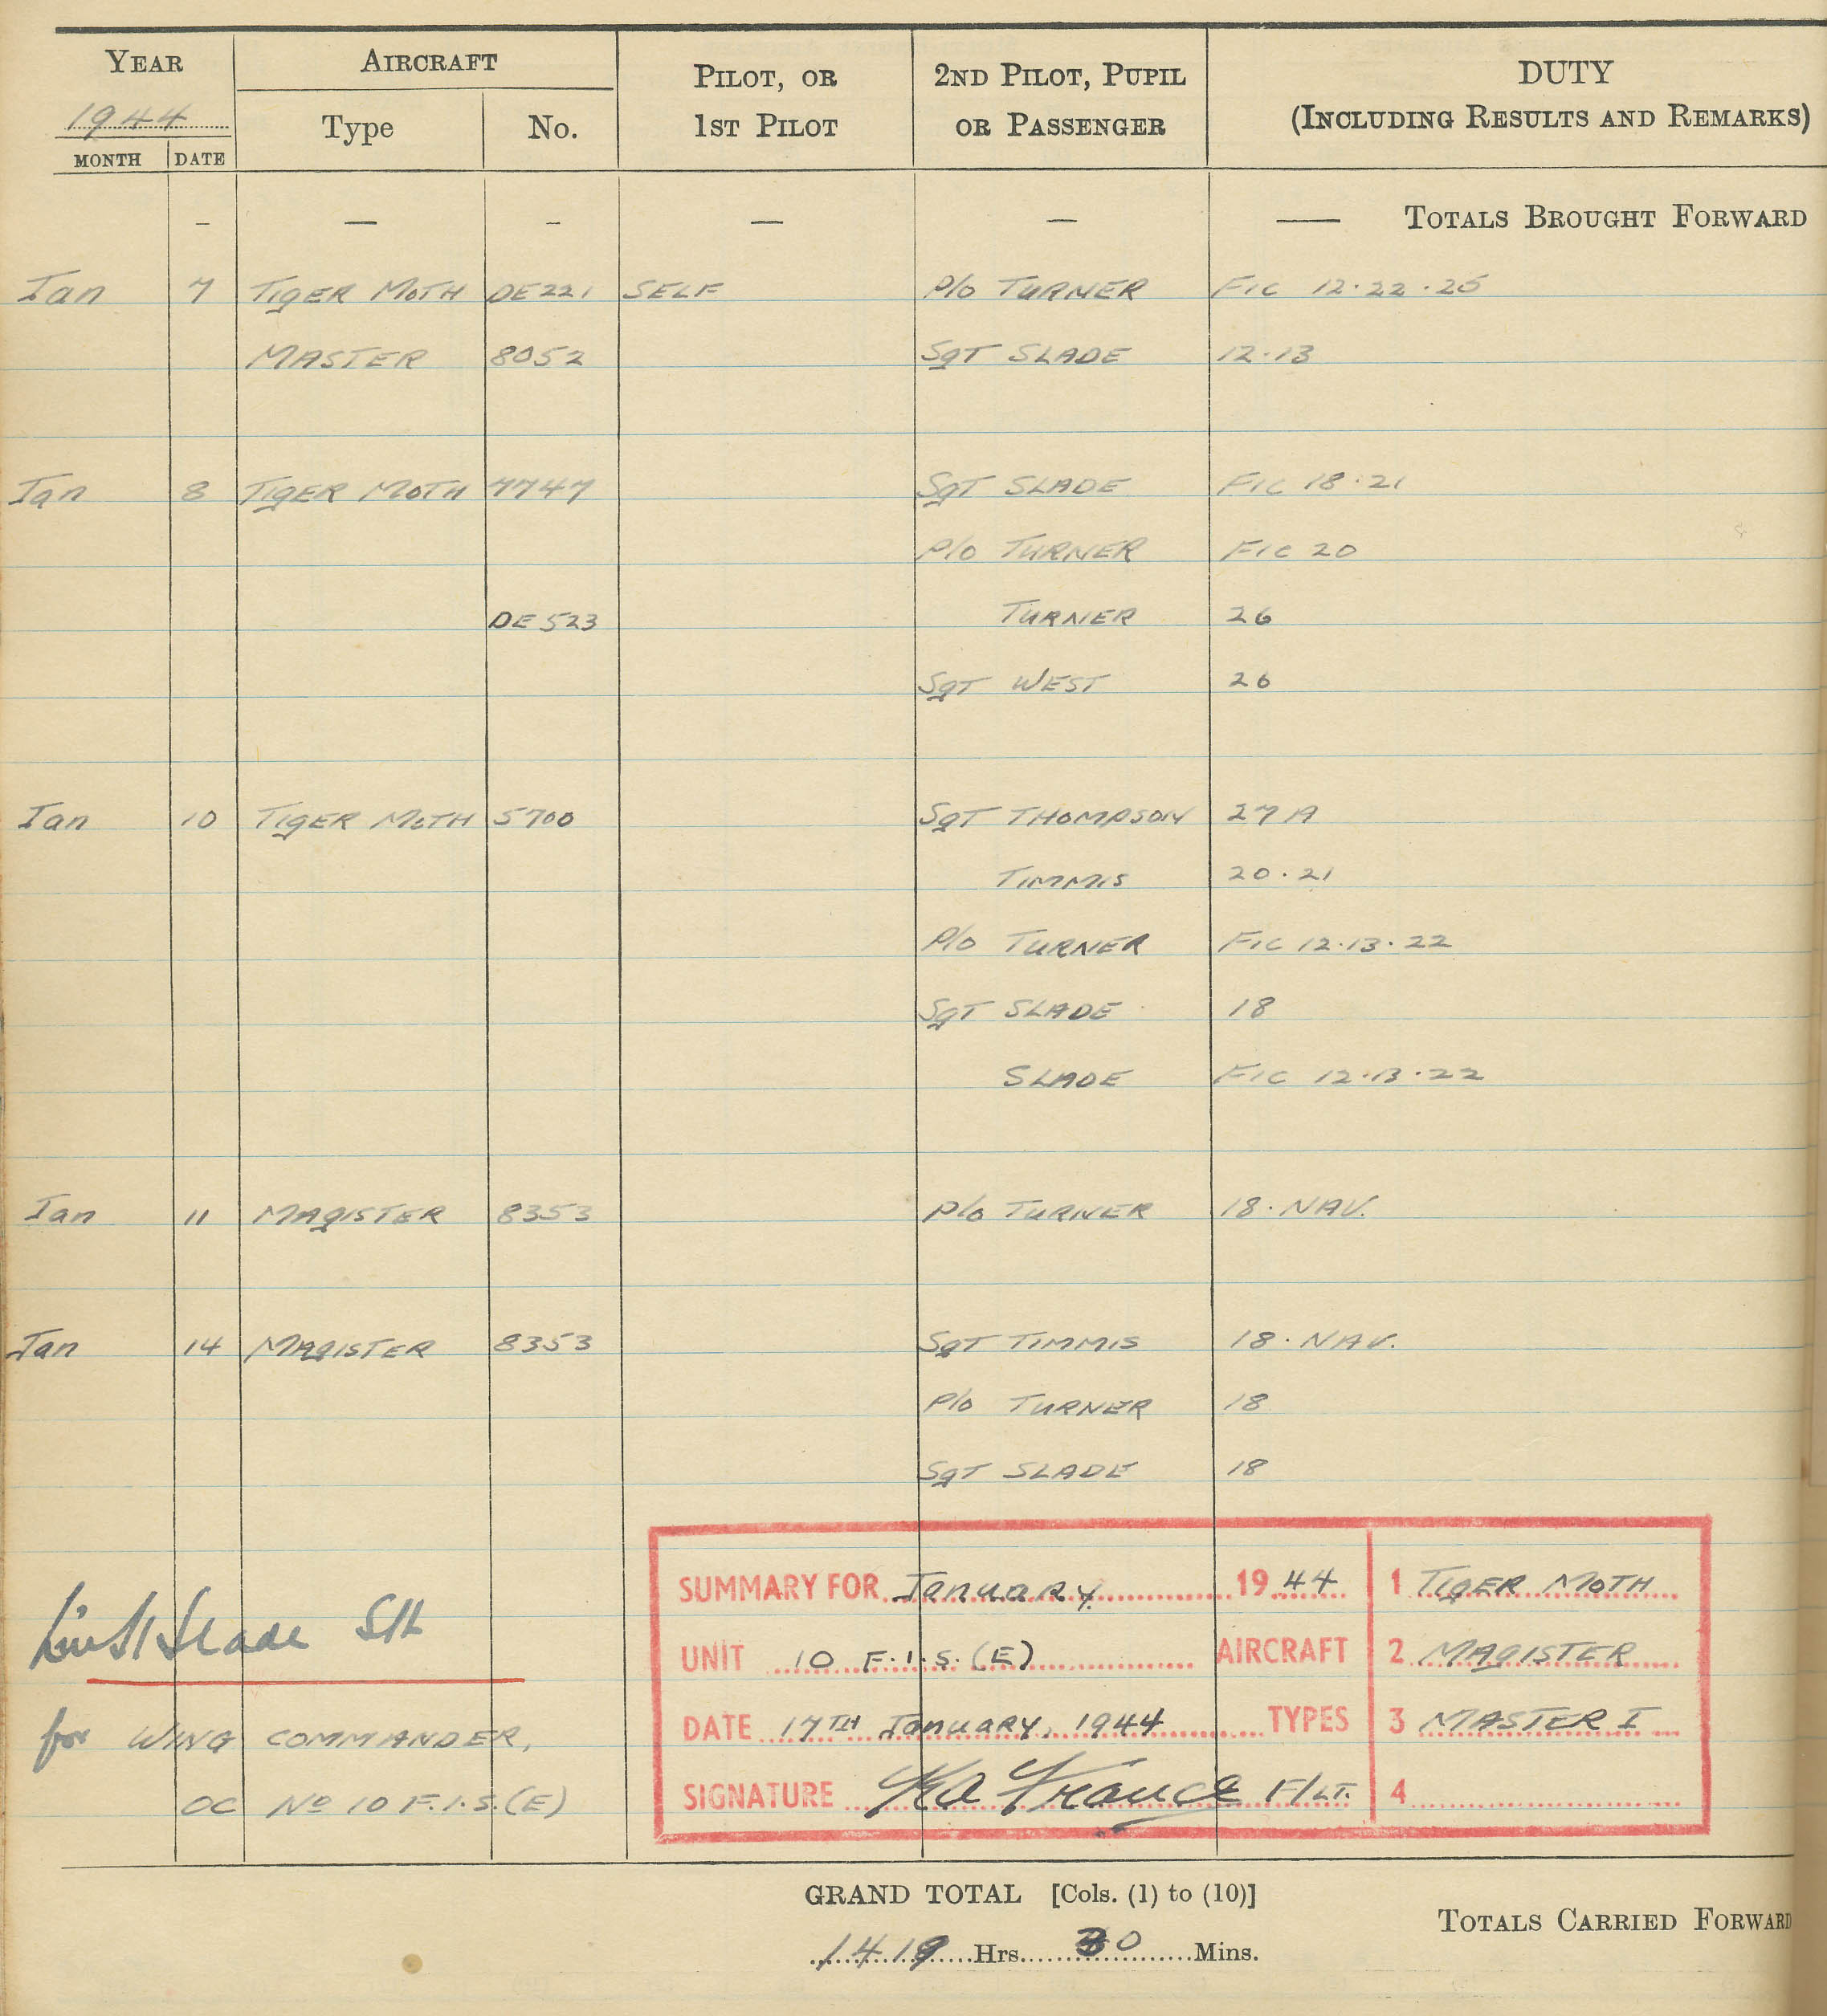 YEAR AIRCRAFT PILOT, OR 1ST PILOT 2ND PILOT, PUPIL OR PASSENGER DUTY (INCLUDING RESULTS AND REMARKS)
1944 Type No.
MONTH DATE
– — – — — — TOTALS BROUGHT FORWARD
Jan 7 TIGER MOTH DE221 SELF P/O TURNER FIC 12·22·25
MASTER 8052 SgT SLADE 12·13
Jan 8 TIGER MOTH 7747 SgT SLADE FIC 18·21
P/O TURNER FIC 20
DE523 TURNER 26
SgT WEST 26
Jan 10 TIGER MOTH 5700 SgT THOMPSON 27A
TIMMIS 20·21
P/O TURNER FIC 12·13·22
SgT SLADE 18
SLADE FIC 12·13·22
Jan 11 MAGISTER 8353 P/O TURNER 18·NAV.
Jan 14 MAGISTER 8353 SgT TIMMIS 18·NAV.
P/O TURNER 18
SgT SLADE 18
SUMMARY FOR January 1944 1 TIGER MOTH
Slade S/L
UNIT 10 F.I.S.(E) AIRCRAFT 2 MAGISTER
DATE 17TH January, 1944 TYPES 3 MASTER I
for WING COMMANDER,
SIGNATURE France F/LT. 4
OC No 10 F.I.S.(E)
GRAND TOTAL [Cols. (1) to (10)]
TOTALS CARRIED FORWARD
1419 Hrs. 30 Mins.